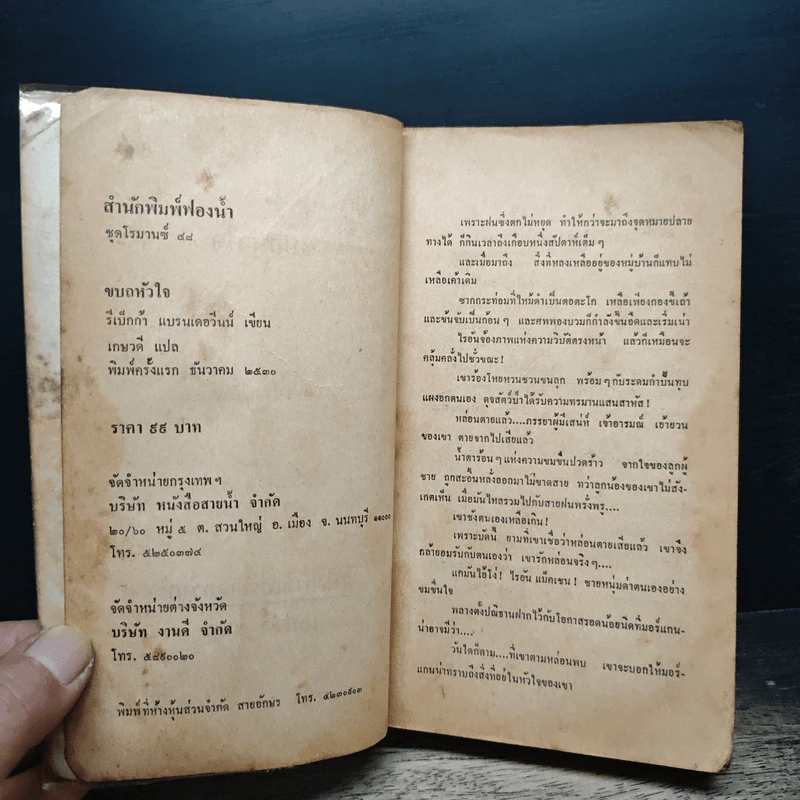 สำนักพิมพ์ฟองน้ำ
ชุดโรมานซ์ ๔๘
ขบถหัวใจ
รีเบ็กก้า แบรนเดอวีนน์ เขียน
เกษวดี แปล
พิมพ์ครั้งแรก ธันวาคม ๒๕๓๐
ราคา ๙๙ บาท
จัดจำหน่ายกรุงเทพฯ
บริษัท หนังสือสายน้ำ จำกัด
๒๐/๖๐ หมู่ ๕ ต. สวนใหญ่ อ. เมือง จ. นนทบุรี ๑๑๐๐๐
โทร. ๕๒๕๐๓๗๔
จัดจำหน่ายต่างจังหวัด
บริษัท งานดี จำกัด
โทร. ๕๘๙๐๐๒๐
พิมพ์ที่ห้างหุ้นส่วนจำกัด สายอักษร โทร. ๔๒๓๐๙๐๓
เพราะฝนซึ่งตกไม่หยุด ทำให้กว่าจะมาถึงจุดหมายปลาย
ทางได้ ก็กินเวลาถึงเกือบหนึ่งสัปดาห์เต็มๆ
และเมื่อมาถึง สิ่งที่หลงเหลืออยู่ของหมู่บ้านก็แทบไม่
เหลือเค้าเดิม
ซากกระท่อมที่ไหม้ดำเป็นตอตะโก เหลือเพียงกองขี้เถ้า
และข้นจับเป็นก้อนๆ และศพพองบวมก็กำลังขึ้นอืดและเริ่มเน่า
ไรอันจ้องภาพแห่งความวิบัติตรงหน้า แล้วก็เหมือนจะ
คลุ้มคลั่งไปชั่วขณะ!
เขาร้องโหยหวนชวนขนลุก พร้อมๆ กับระดมกำปั้นทุบ
แผงอกตนเอง ดุจสัตว์ป่าได้รับความทรมานแสนสาหัส!
หล่อนตายแล้ว....ภรรยาผู้มีเสน่ห์ เจ้าอารมณ์ เย้ายวน
ของเขา ตายจากไปเสียแล้ว
น้ำตาร้อนๆ แห่งความขมขื่นปวดร้าว จากใจของลูกผู้
ชาย ถูกสะอื้นหลั่งออกมาไม่ขาดสาย ทว่าลูกน้องของเขาไม่สัง-
เกตเห็น เมื่อมันไหลรวมไปกับสายฝนพรั่งพรู....
เขาชังตนเองเหลือเกิน!
เพราะบัดนี้ ยามที่เขาเชื่อว่าหล่อนตายเสียแล้ว เขาจึง
กล้ายอมรับกับตนเองว่า เขารักหล่อนจริงๆ....
แกมันไอ้โง่! ไรอัน แม็คเชน! ชายหนุ่มด่าตนเองอย่าง
ขมขื่นใจ
พลางตั้งปณิธานฝากไว้กับโอกาสรอดน้อยนิดที่มอร์แกน-
น่าอาจมีว่า....
วันใดก็ตาม....ที่เขาตามหล่อนพบ เขาจะบอกให้มอร์-
แกนน่าทราบถึงสิ่งที่อยู่ในหัวใจของเขา